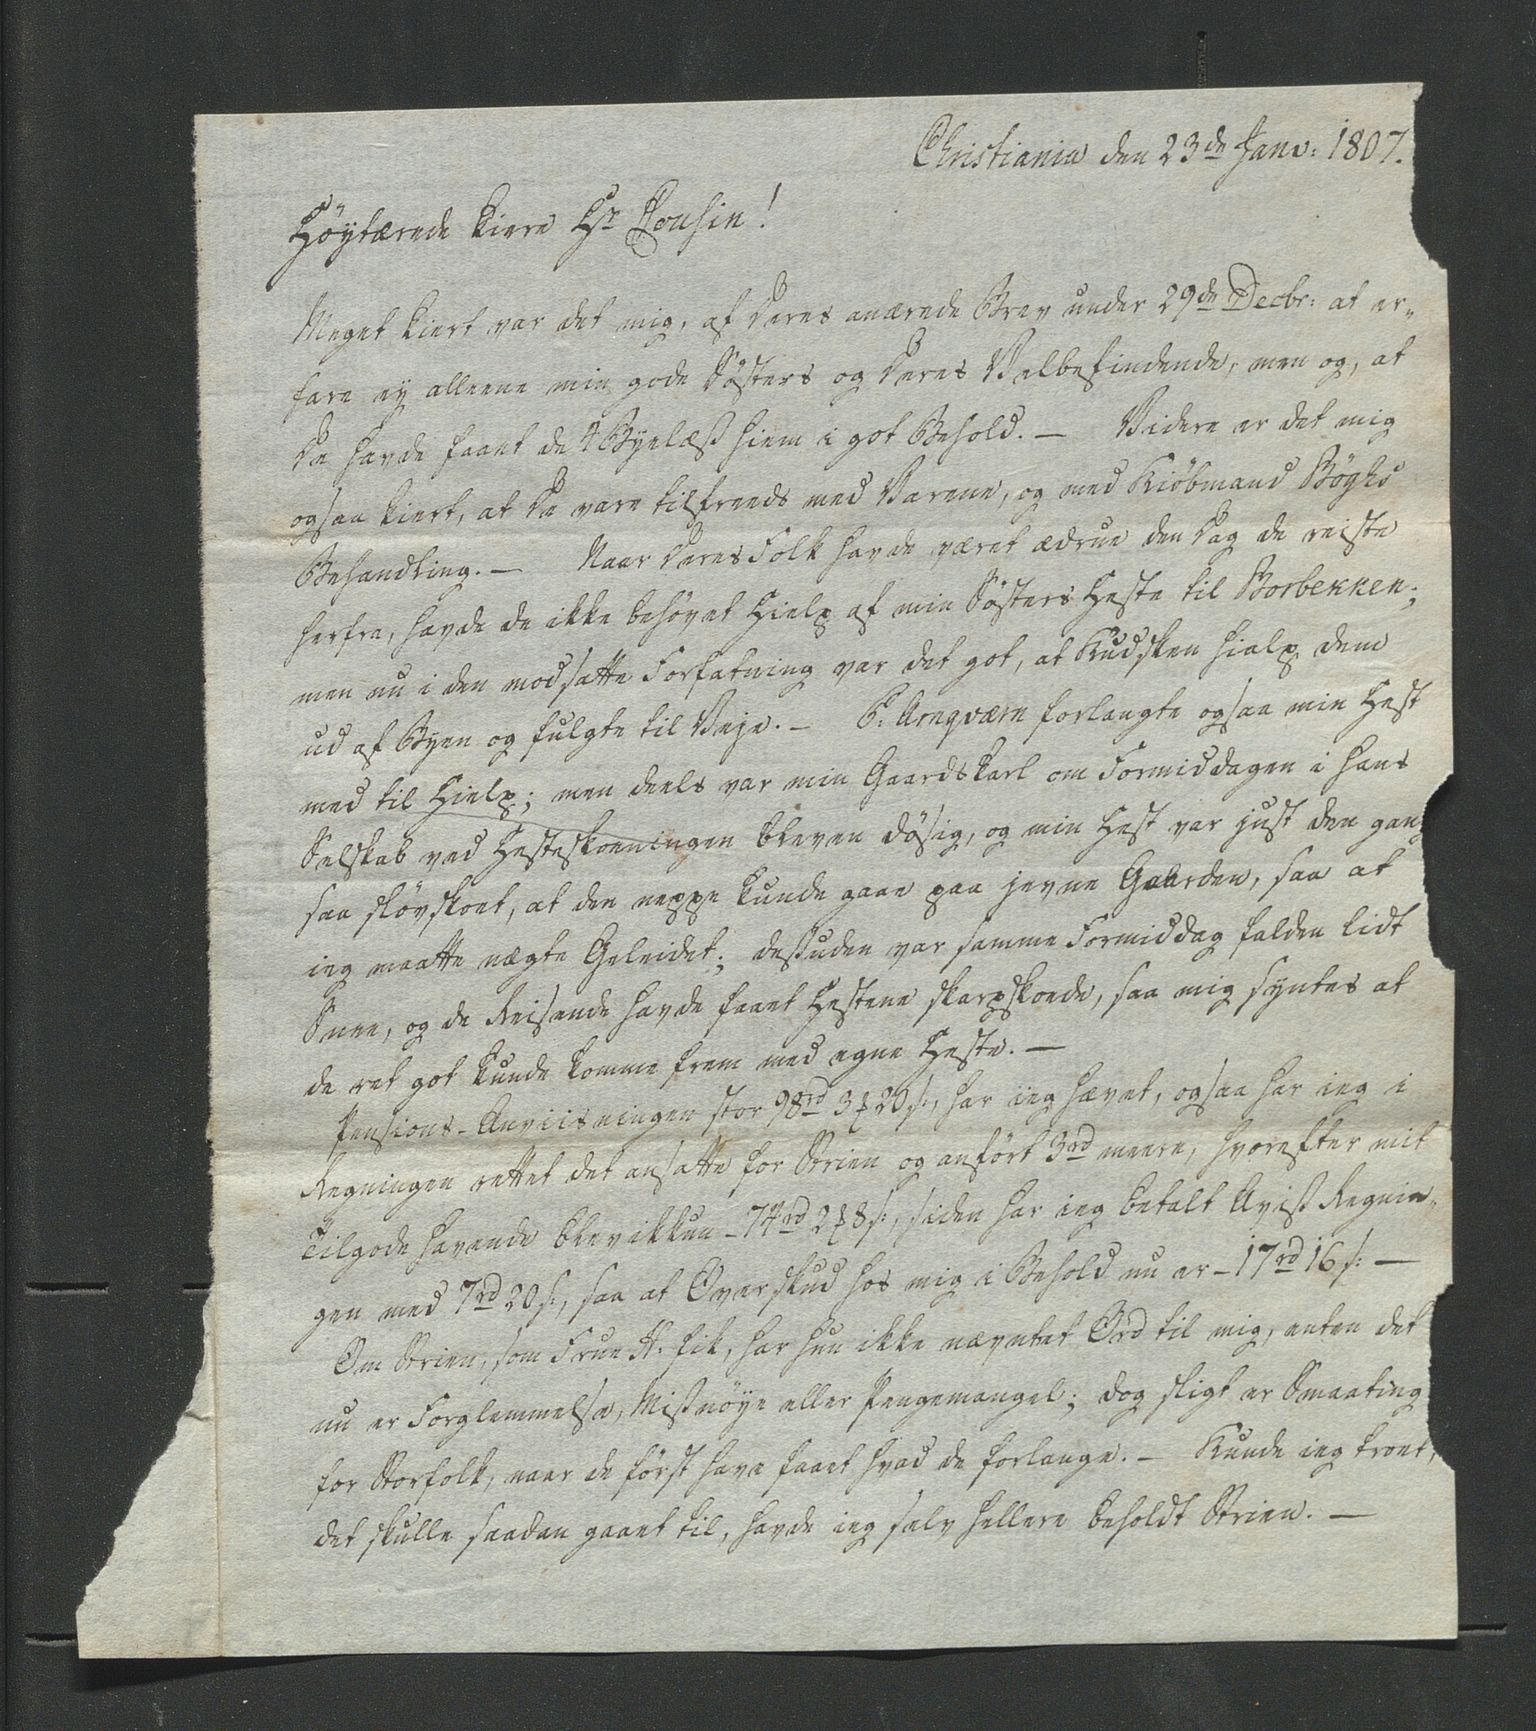 Christiania den 23de Janv: 1807.
Höytærede kiere Hr Cousin!
Meget kiert var det mig, af Deres anærede Brev under 29de Decbr: at er-
fare ey alleene min gode Søsters og Deres Velbefindende, men og, at
De havde faaet de 4 Byelæß hiem i got Behold. — Videre er det mig
ogsaa kiert, at De vare tilfreeds med Varene, og med Kiöbmand Böghs
Behandling. — Naar Deres Folk havde været ædrue den Dag de reiste
herfra, havde de ikke behövet Hielp af min Søsters Heste til Borbekken;
men nu i den modsatte Forfatning var det got, at Kudsken hialp dem
ud af Byen og fulgte til Veje. — P: Arnqværn forlangte ogsaa min Hest
med til Hielp; men deels var min Gaardskarl om Formiddagen i hans
Selskab ved Hesteskoeningen bleven dösig, og min Hest var just den gang
saa slövskoet, at den neppe kunde gaae paa jevne Gaarden, saa at
ieg maatte nægte Geleidet; desuden var samme Formiddag falden lidt
Snee, og de Reisende havde faaet Hestene skarpskoede, saa mig syntes at
de ret got kunde komme frem med egne Heste. —
Pensions-Anviisningen stor 98rd 3 ₰ 20 s:, har ieg hævet, ogsaa har ieg i
Regningen rettet det ansatte for Strien og anfört 3rd meere, hvorefter mit
Tilgode havende blev ikkun - 74rd 2 ₰ 8 s:, siden har ieg betalt Aviß Regnin-
gen med 7rd 20 s:, saa at Overskud hos mig i Behold nu er - 17rd 16 s: —
Om Strien, som Frue A. fik, har hun ikke nævntet Ord til mig, enten det
nu er Forglemmelse, Misnöye eller Pengemangel; dog sligt er Smaating
for Storfolk, naar de först have faaet hvad de forlange. — Kunde ieg troet,
det skulle saadan gaaet til, havde ieg selv hellere beholdt Strien. —